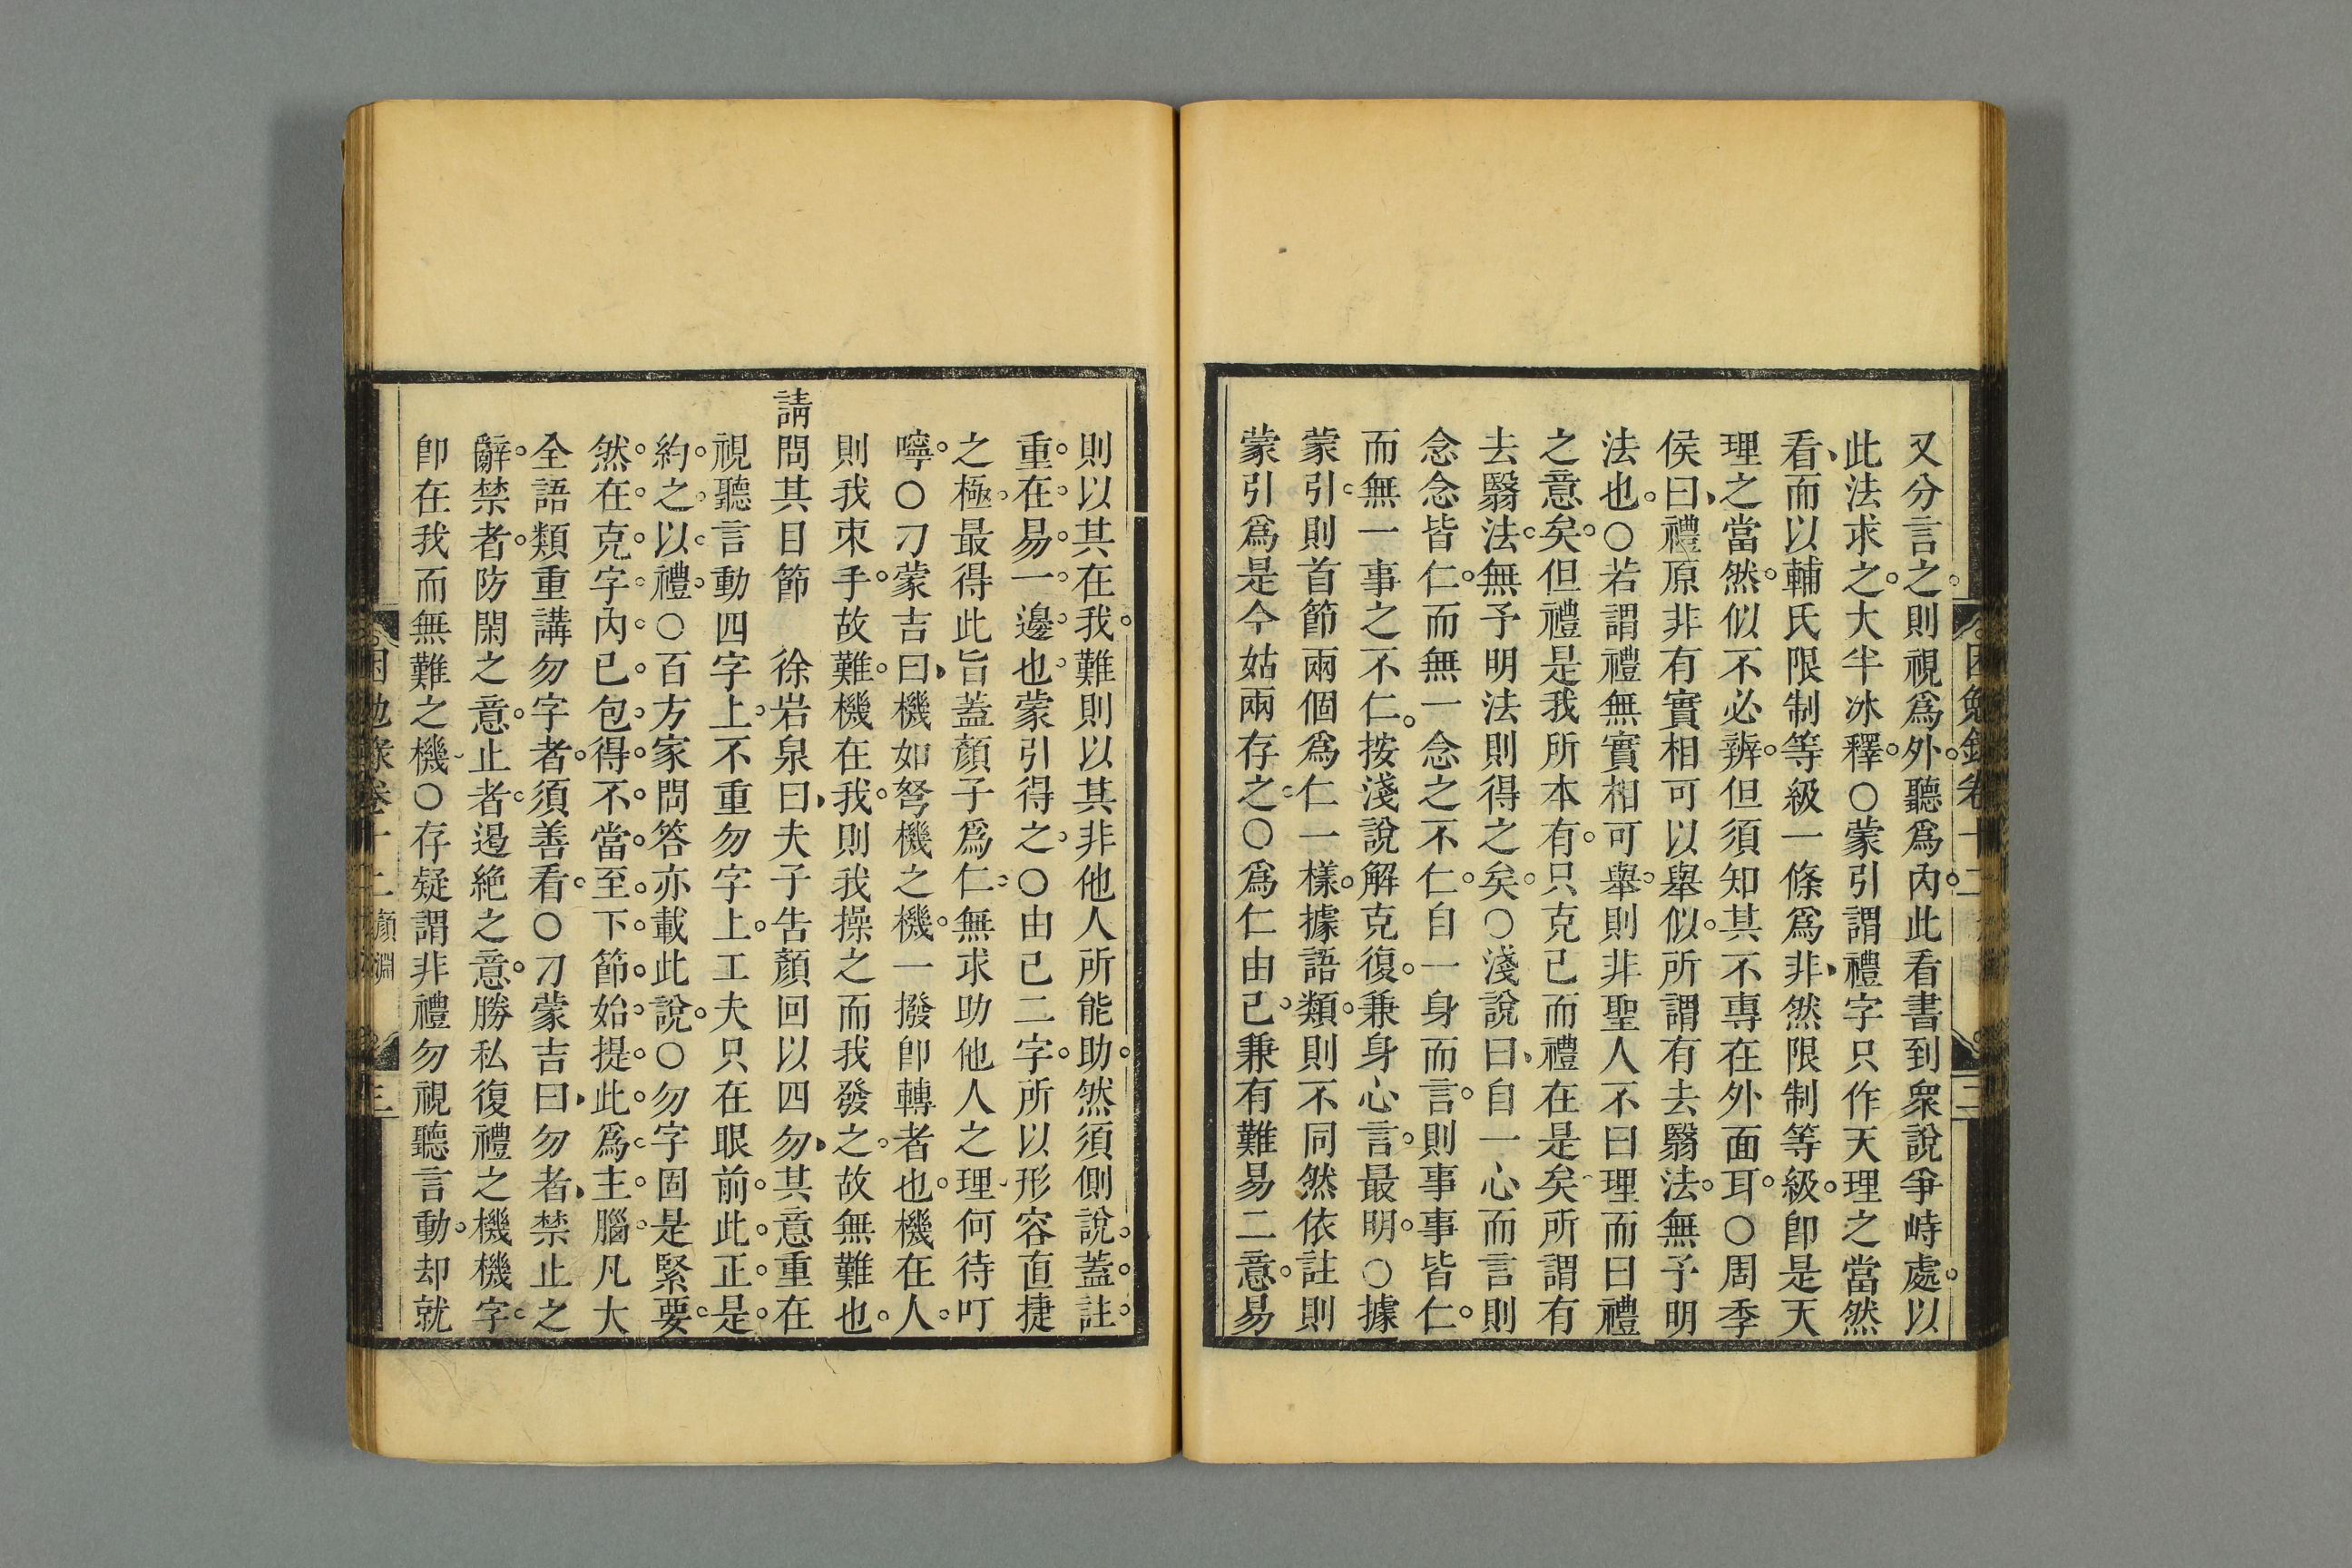 又分言之則視爲外聽爲內此看書到衆說爭峙處以
此法求之大半冰釋○蒙引謂禮字只作天理之當然
看而以輔氏限制等級一條爲非然限制等級卽是天
理之當然似不必辨但須知其不專在外面耳○周季
侯曰禮原非有實相可以舉似所謂有去翳法無予明
法也○若謂禮無實相可舉則非聖人不曰理而曰禮
之意矣但禮是我所本有只克己而禮在是矣所謂有
去翳法無予明法則得之矣○淺說曰自一心而言則
念念皆仁而無一念之不仁自一身而言則事事皆仁
而無一事之不仁按淺說解克復兼身心言最明○據
蒙引則首節兩個爲仁一樣據語類則不同然依註則
蒙引爲是今姑兩存之○爲仁由己兼有難易二意易
則以其在我難則以其非他人所能助然須側說蓋註
重在易一邊也蒙引得之○由己二字所以形容直捷
之極最得此旨蓋顏子爲仁無求助他人之理何待叮
嚀○刁蒙吉曰機如弩機之機一撥卽轉者也機在人
則我束手故難機在我則我操之而我發之故無難也
請問其目節　徐岩泉曰夫子告顏回以四勿其意重在
視聽言動四字上不重勿字上工夫只在眼前此正是
約之以禮○百方家問答亦載此說○勿字固是緊要
然在克字內已包得不當至下節始提此爲主腦凡大
全語類重講勿字者須善看○刁蒙吉曰勿者禁止之
辭禁者防閑之意止者遏絕之意勝私復禮之機機字
卽在我而無難之機○存疑謂非禮勿視聽言動却就
困勉錄卷十二 顏淵 三